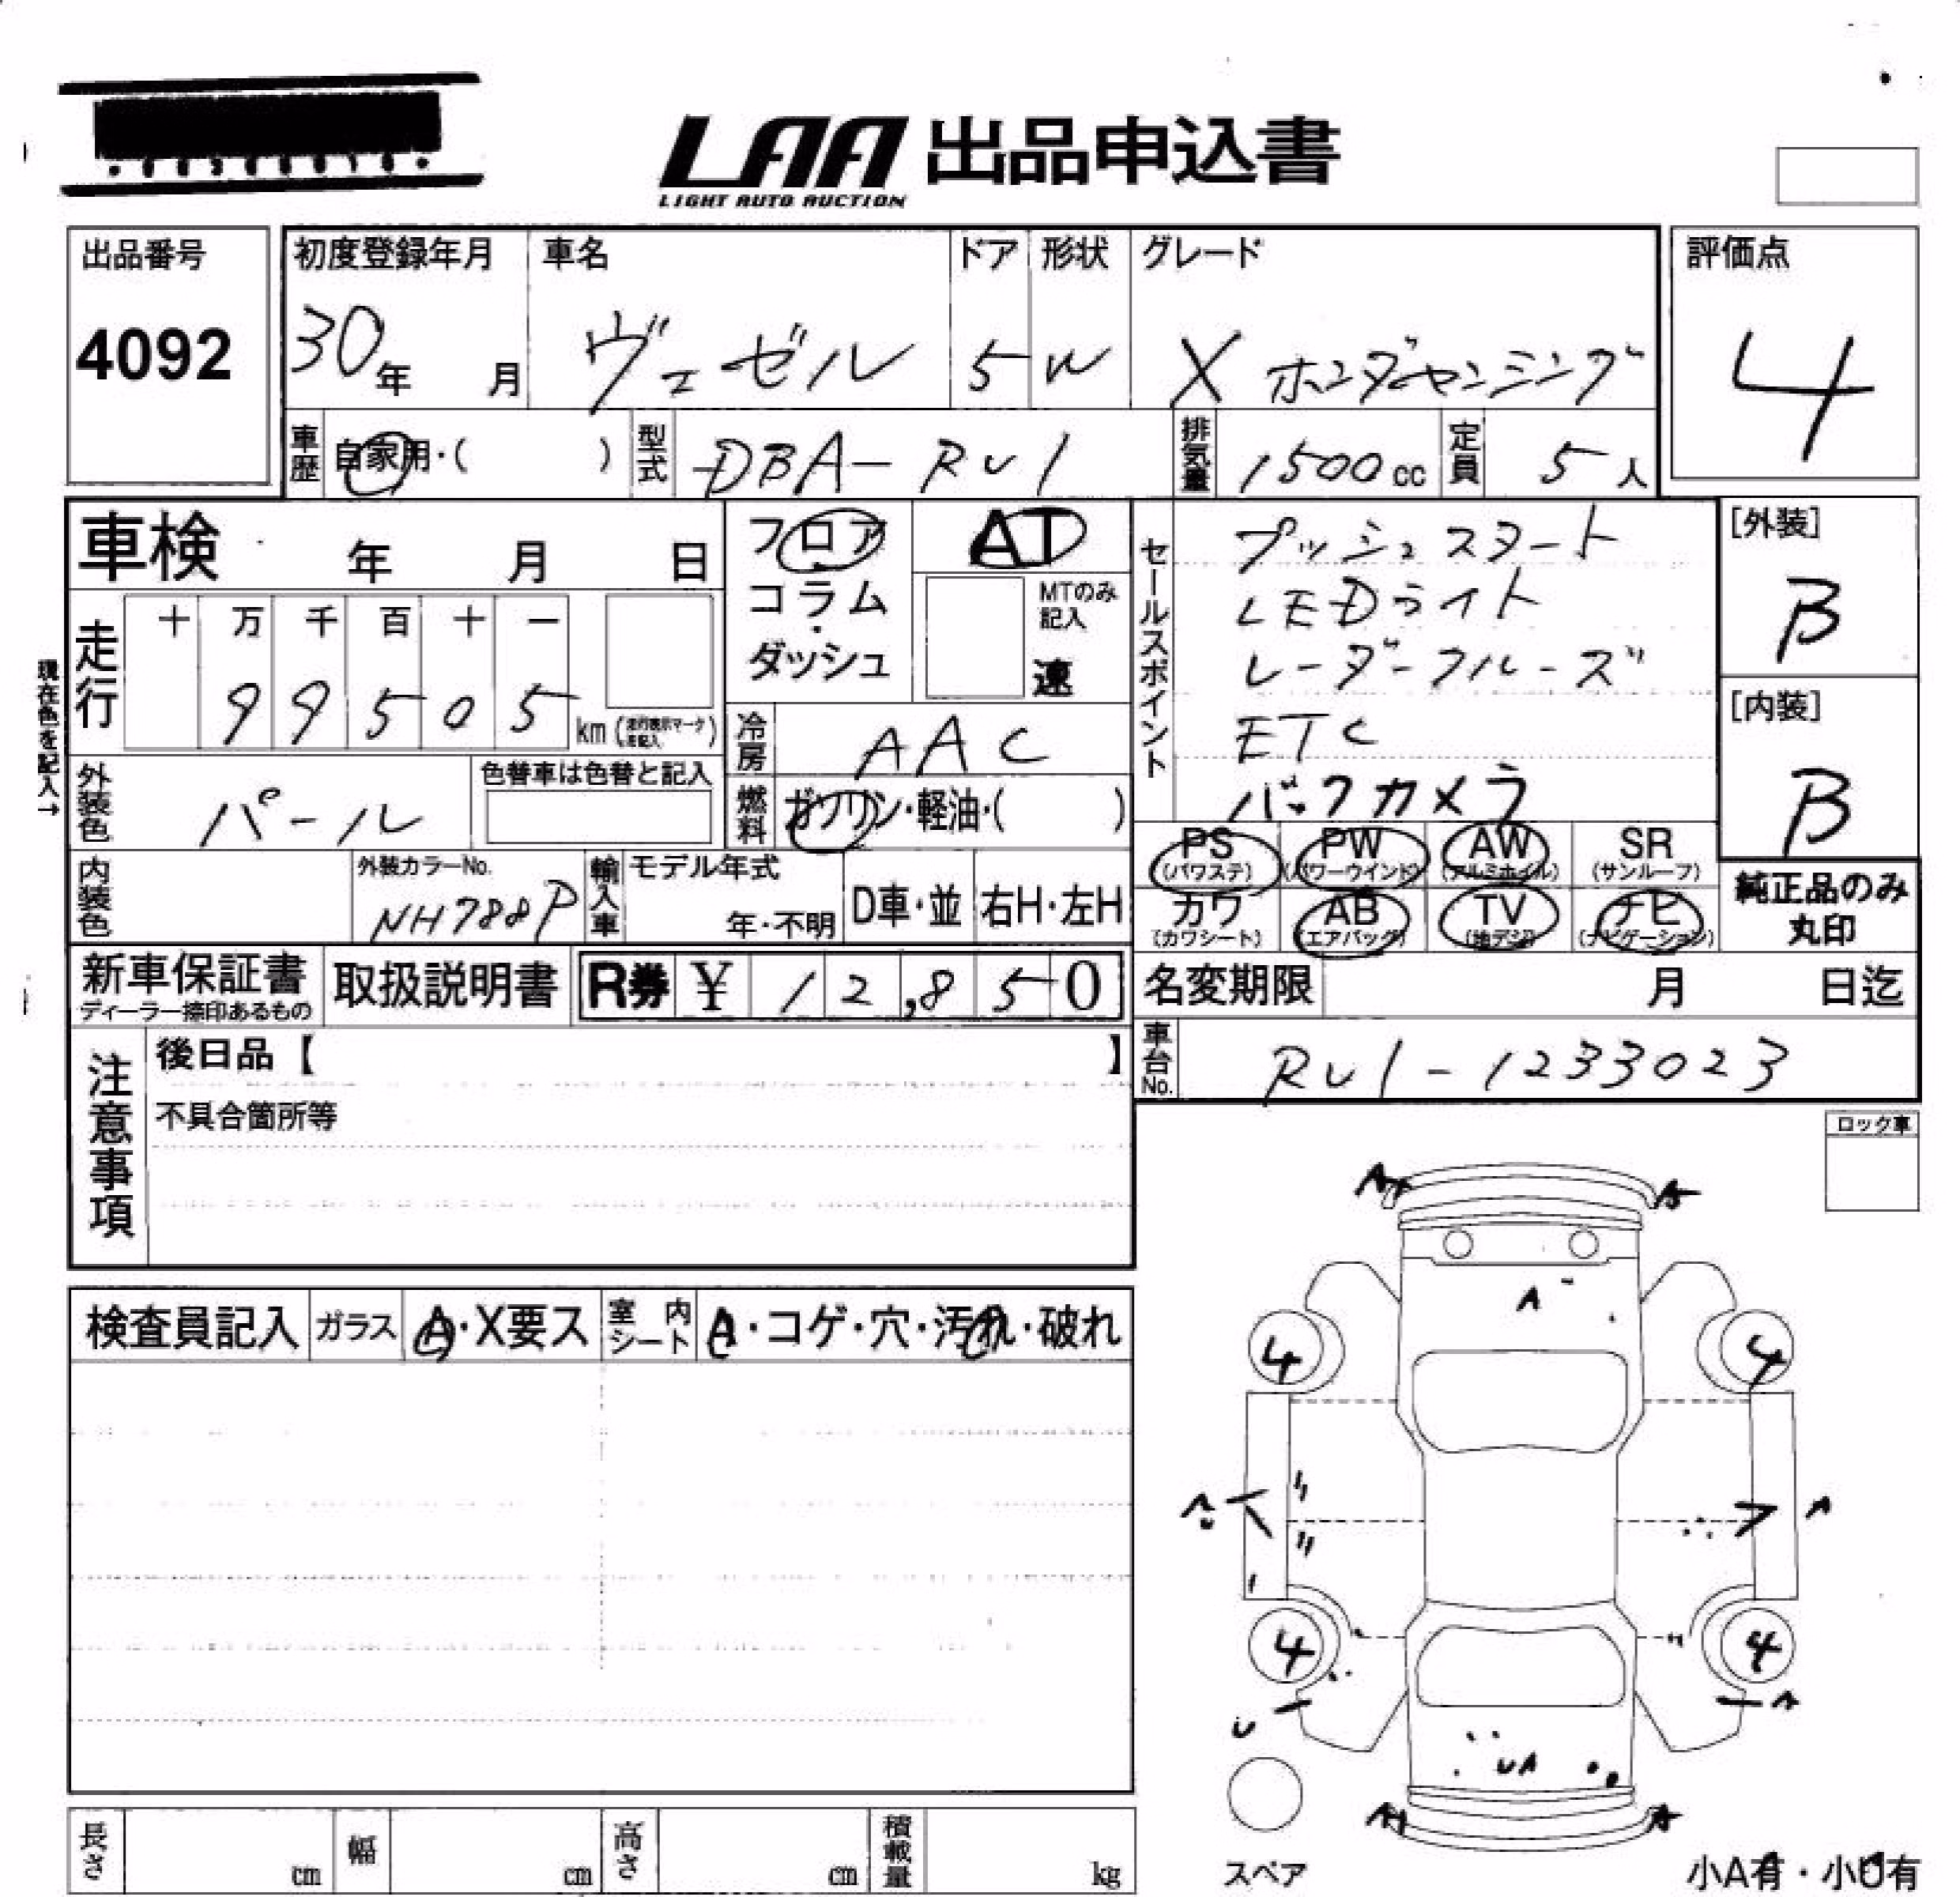 LAA 出品申込書
LIGHT AUTO AUCTION
出品番号
4092
初度登録年月 車名 ドア 形状 グレード
30年 月 ヴェゼル 5 W X ホンダセンシング
評価点
4
車歴 自家用・( ) 型式 DBA-RU1 排気量 1500cc 定員 5人
車検 年 月 日
フロア
コラム・
ダッシュ
AT
MTのみ
記入
速
セールスポイント
プッシュスタート
LEDライト
レーダークルーズ
ETC
バックカメラ
[外装]
B
[内装]
B
現在色を記入→
走行 十 万 千 百 十 一
99505 km
冷房 AAC
外装色 パール 色替車は色替と記入
燃料 ガソリン・軽油・( )
内装色 外装カラーNo. NH788P 輸入車 モデル年式 年・不明 D車・並 右H・左H
PS PW AW SR
(パワステ) (パワーウインド) (アルミホイル) (サンルーフ)
カワ AB TV ナビ
(カワシート) (エアバッグ) (地デジ) (ナビゲーション)
純正品のみ
丸印
新車保証書 取扱説明書 R券 ¥ 12,850
ディーラー捺印あるもの
名変期限 月 日迄
車台No. RU1-1233023
注意事項
後日品【 】
不具合箇所等
ロック車
検査員記入 ガラス A・X要ス 室内シート A・コゲ・穴・汚れ・破れ
A A
A
4 4
A A
4 4
U A
UA
A A
スペア
長さ cm 幅 cm 高さ cm 積載量 kg
小A有・小U有